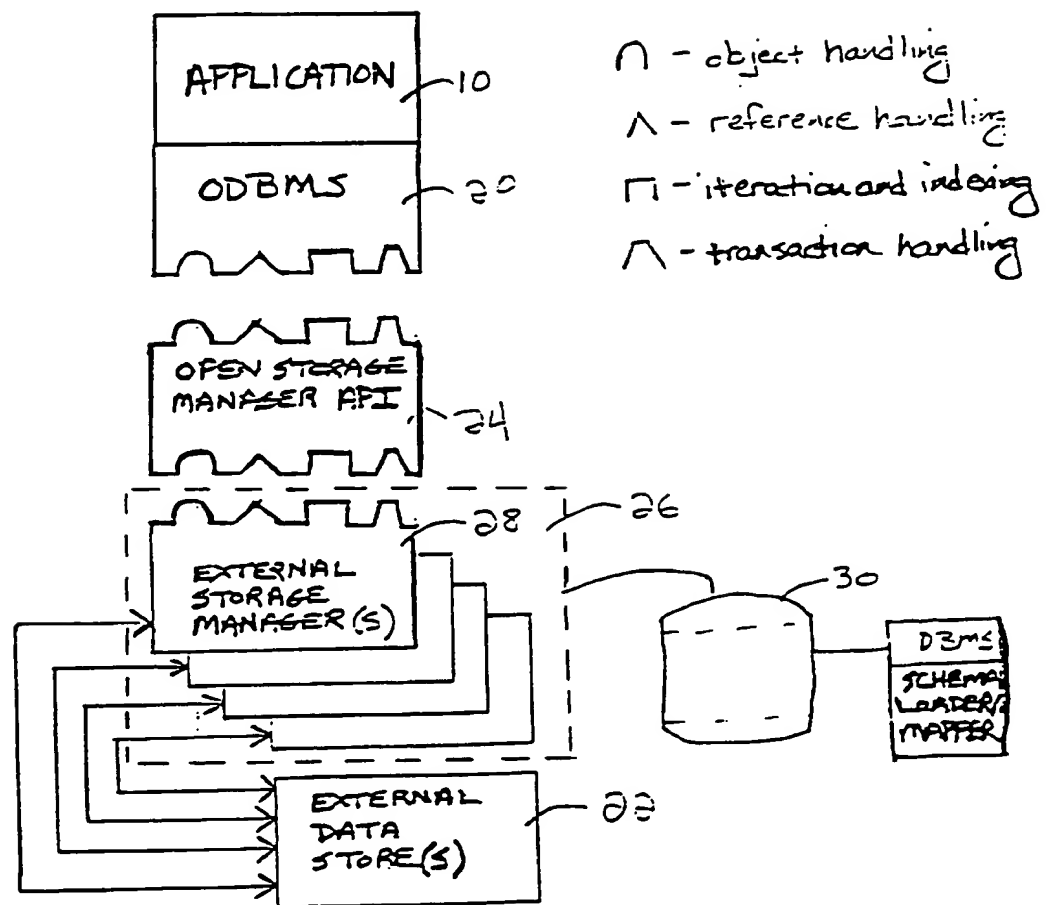 APPLICATION
10
ODBMS
20
∩ - object handling
∧ - reference handling
⊓ - iteration and indexing
/‾\ - transaction handling
OPEN STORAGE
MANAGER API
24
28
26
EXTERNAL
STORAGE
MANAGER(S)
30
DBMS
SCHEMA
LOADER/
MAPPER
EXTERNAL
DATA
STORE(S)
22